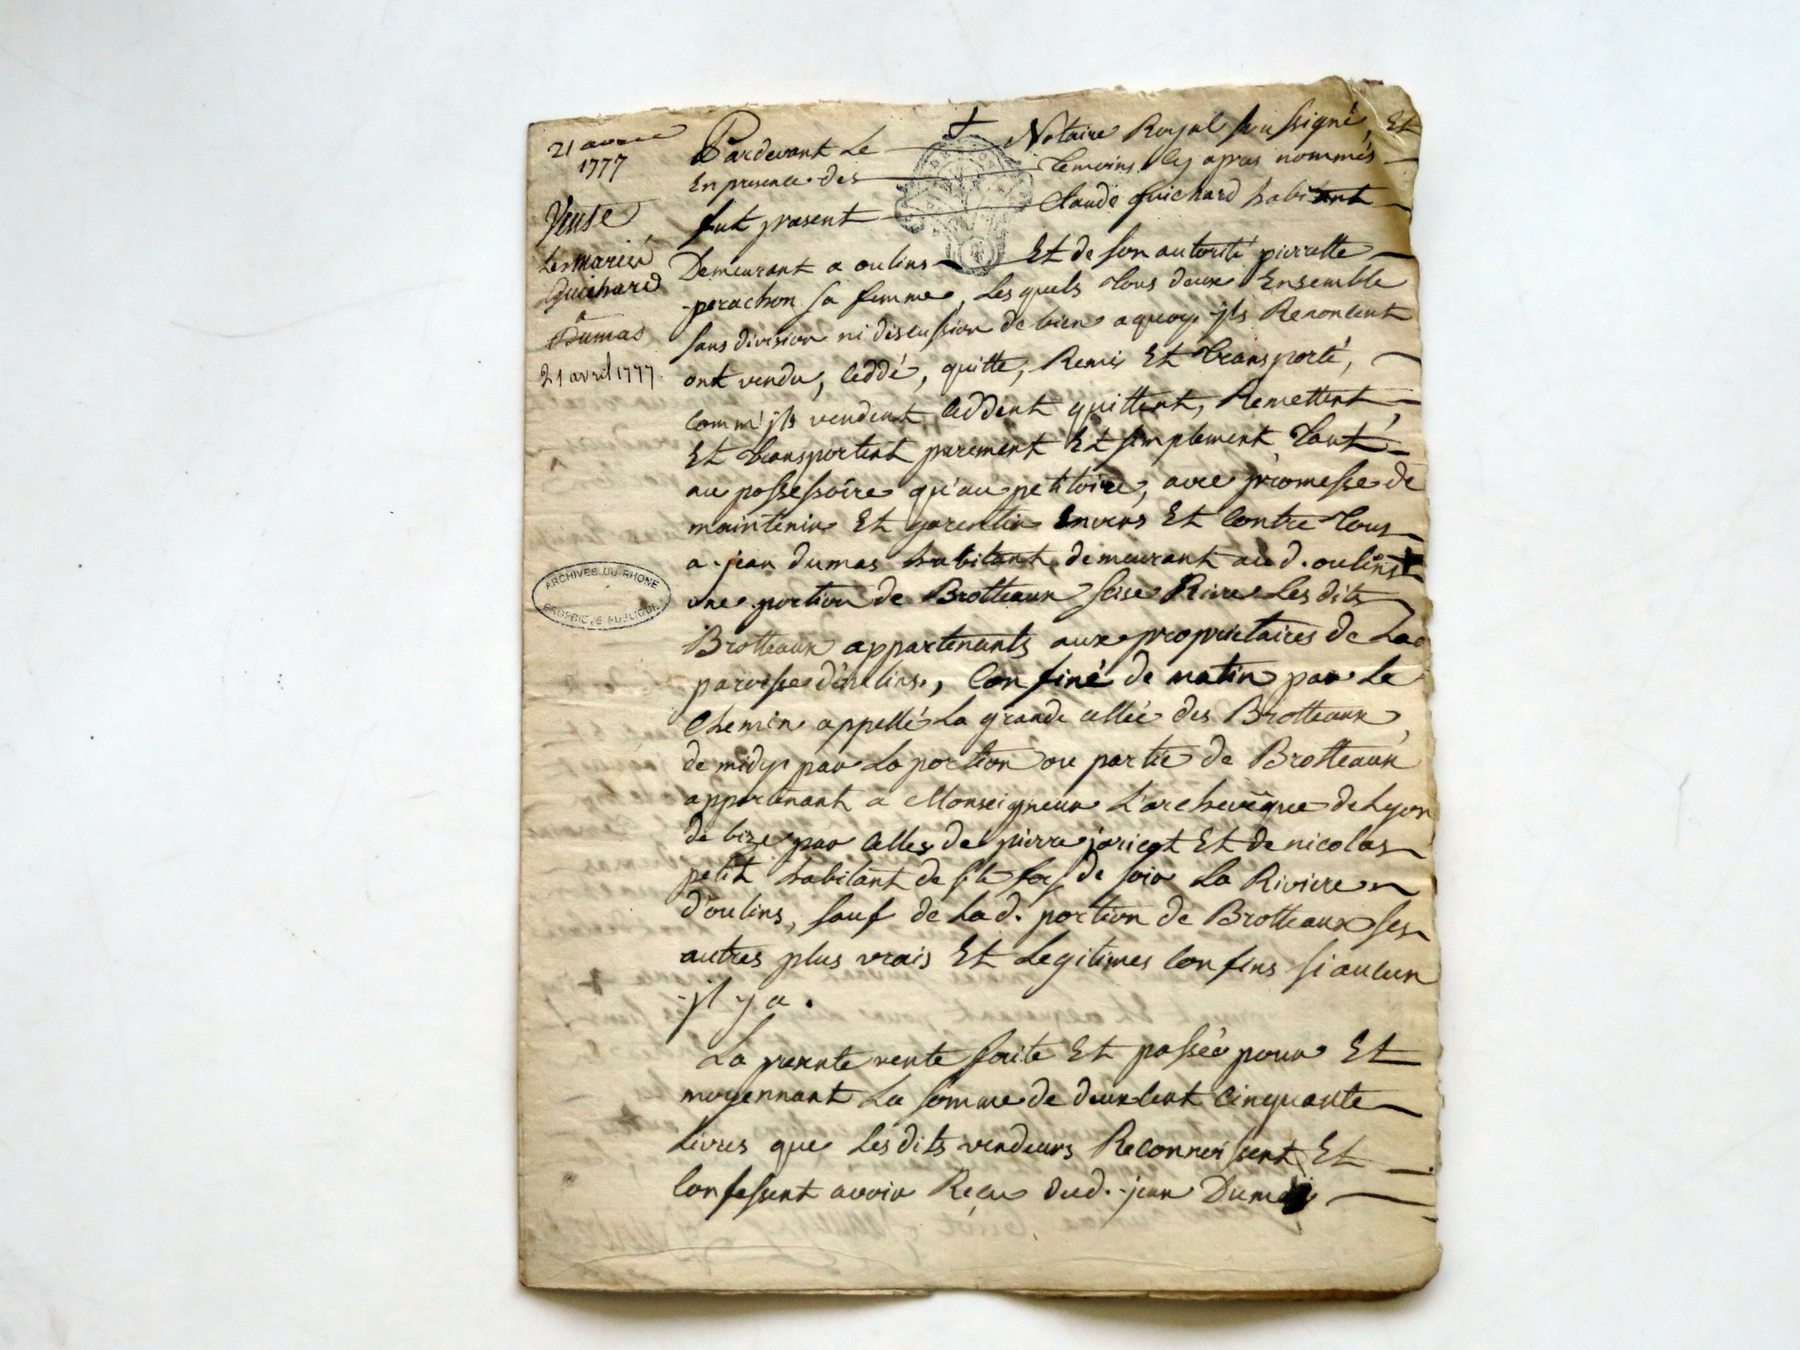 21 avril
1777
Vente
Les mariés
Guichard
a
Dumas
21 avril 1777
ARCHIVES DU RHONE
PROPRIÉTÉ PUBLIQUE
Pardevant Le Notaire Royal soussigné, Et
En presence des temoins cy apres nommés
fut present Claude Guichard habitant
Demeurant a oulins Et de son autorité pierrette
perachon sa femme, Lesquels tous deux Ensemble
sans division ni discussion de bien aquoy jls Renoncent
ont vendu, Ceddé, quitte, Remis Et transporté,
comm'jls vendent Ceddent quittent, Remettent,
Et transportent purement Et simplement tant
au possessoire qu'au petitoire, avec promesse de
maintenir Et garentir Envers Et Contre tous
a jean dumas habitant demeurant aud. oulins
une portion de Brotteaux sise Riere Les dits
Brotteaux appartenants aux proprietaires de La
paroisse d'oulins, Confiné de matin par Le
Chemin appellé La grande allée des Brotteaux,
de midy par La portion ou partie de Brotteaux
appartenant a Monseigneur L'archevêque de Lyon
de bize par Celles de pierre jaricot Et de nicolas
petit habitant de ste foy de soir La Riviere
d'oulins, sauf de Lad. portion de Brotteaux ses
autres plus vrais Et Legitimes Confins si aucun
jl y a.
La presente vente faite Et passée pour Et
moyennant La somme de deux Cent Cinquante
Livres que Lesdits vendeurs Reconnoissent Et
Confessent avoir Reçu dud. jean Dumas